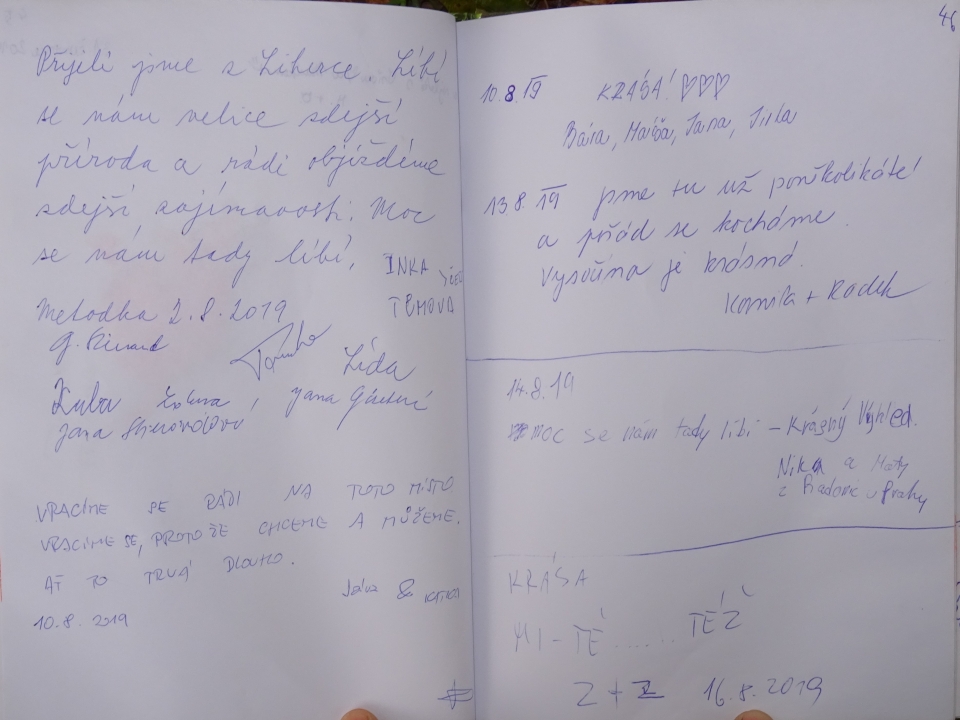 Přijeli jsme z Liberce. Líbí
se nám velice zdejší
příroda a rádi objíždíme
zdejší zajímavosti. Moc
se nám tady líbí,
INKA
Metodka 2.8.2019
Lída
Kuba
Jana
Jana
VRACÍME SE RÁDI NA TOTO MÍSTO.
VRACÍME SE, PROTOŽE CHCEME A MŮŽEME.
AŤ TO TRVÁ DLOUHO.
&
10.8. 2019
46
10.8.19 KRÁSA! ♡♡♡
Bára, Jana, Jirka
13.8.19 jsme tu už poněkolikáté
a pořád se kocháme.
Vysočina je krásná.
Kamila + Radek
14.8.19
MOC se nám tady líbí – Krásný Výhled.
Nika a Maty
z Prahy
KRÁSA
MI-TÉ...... TÉŽ
Z + Z 16.8.2019